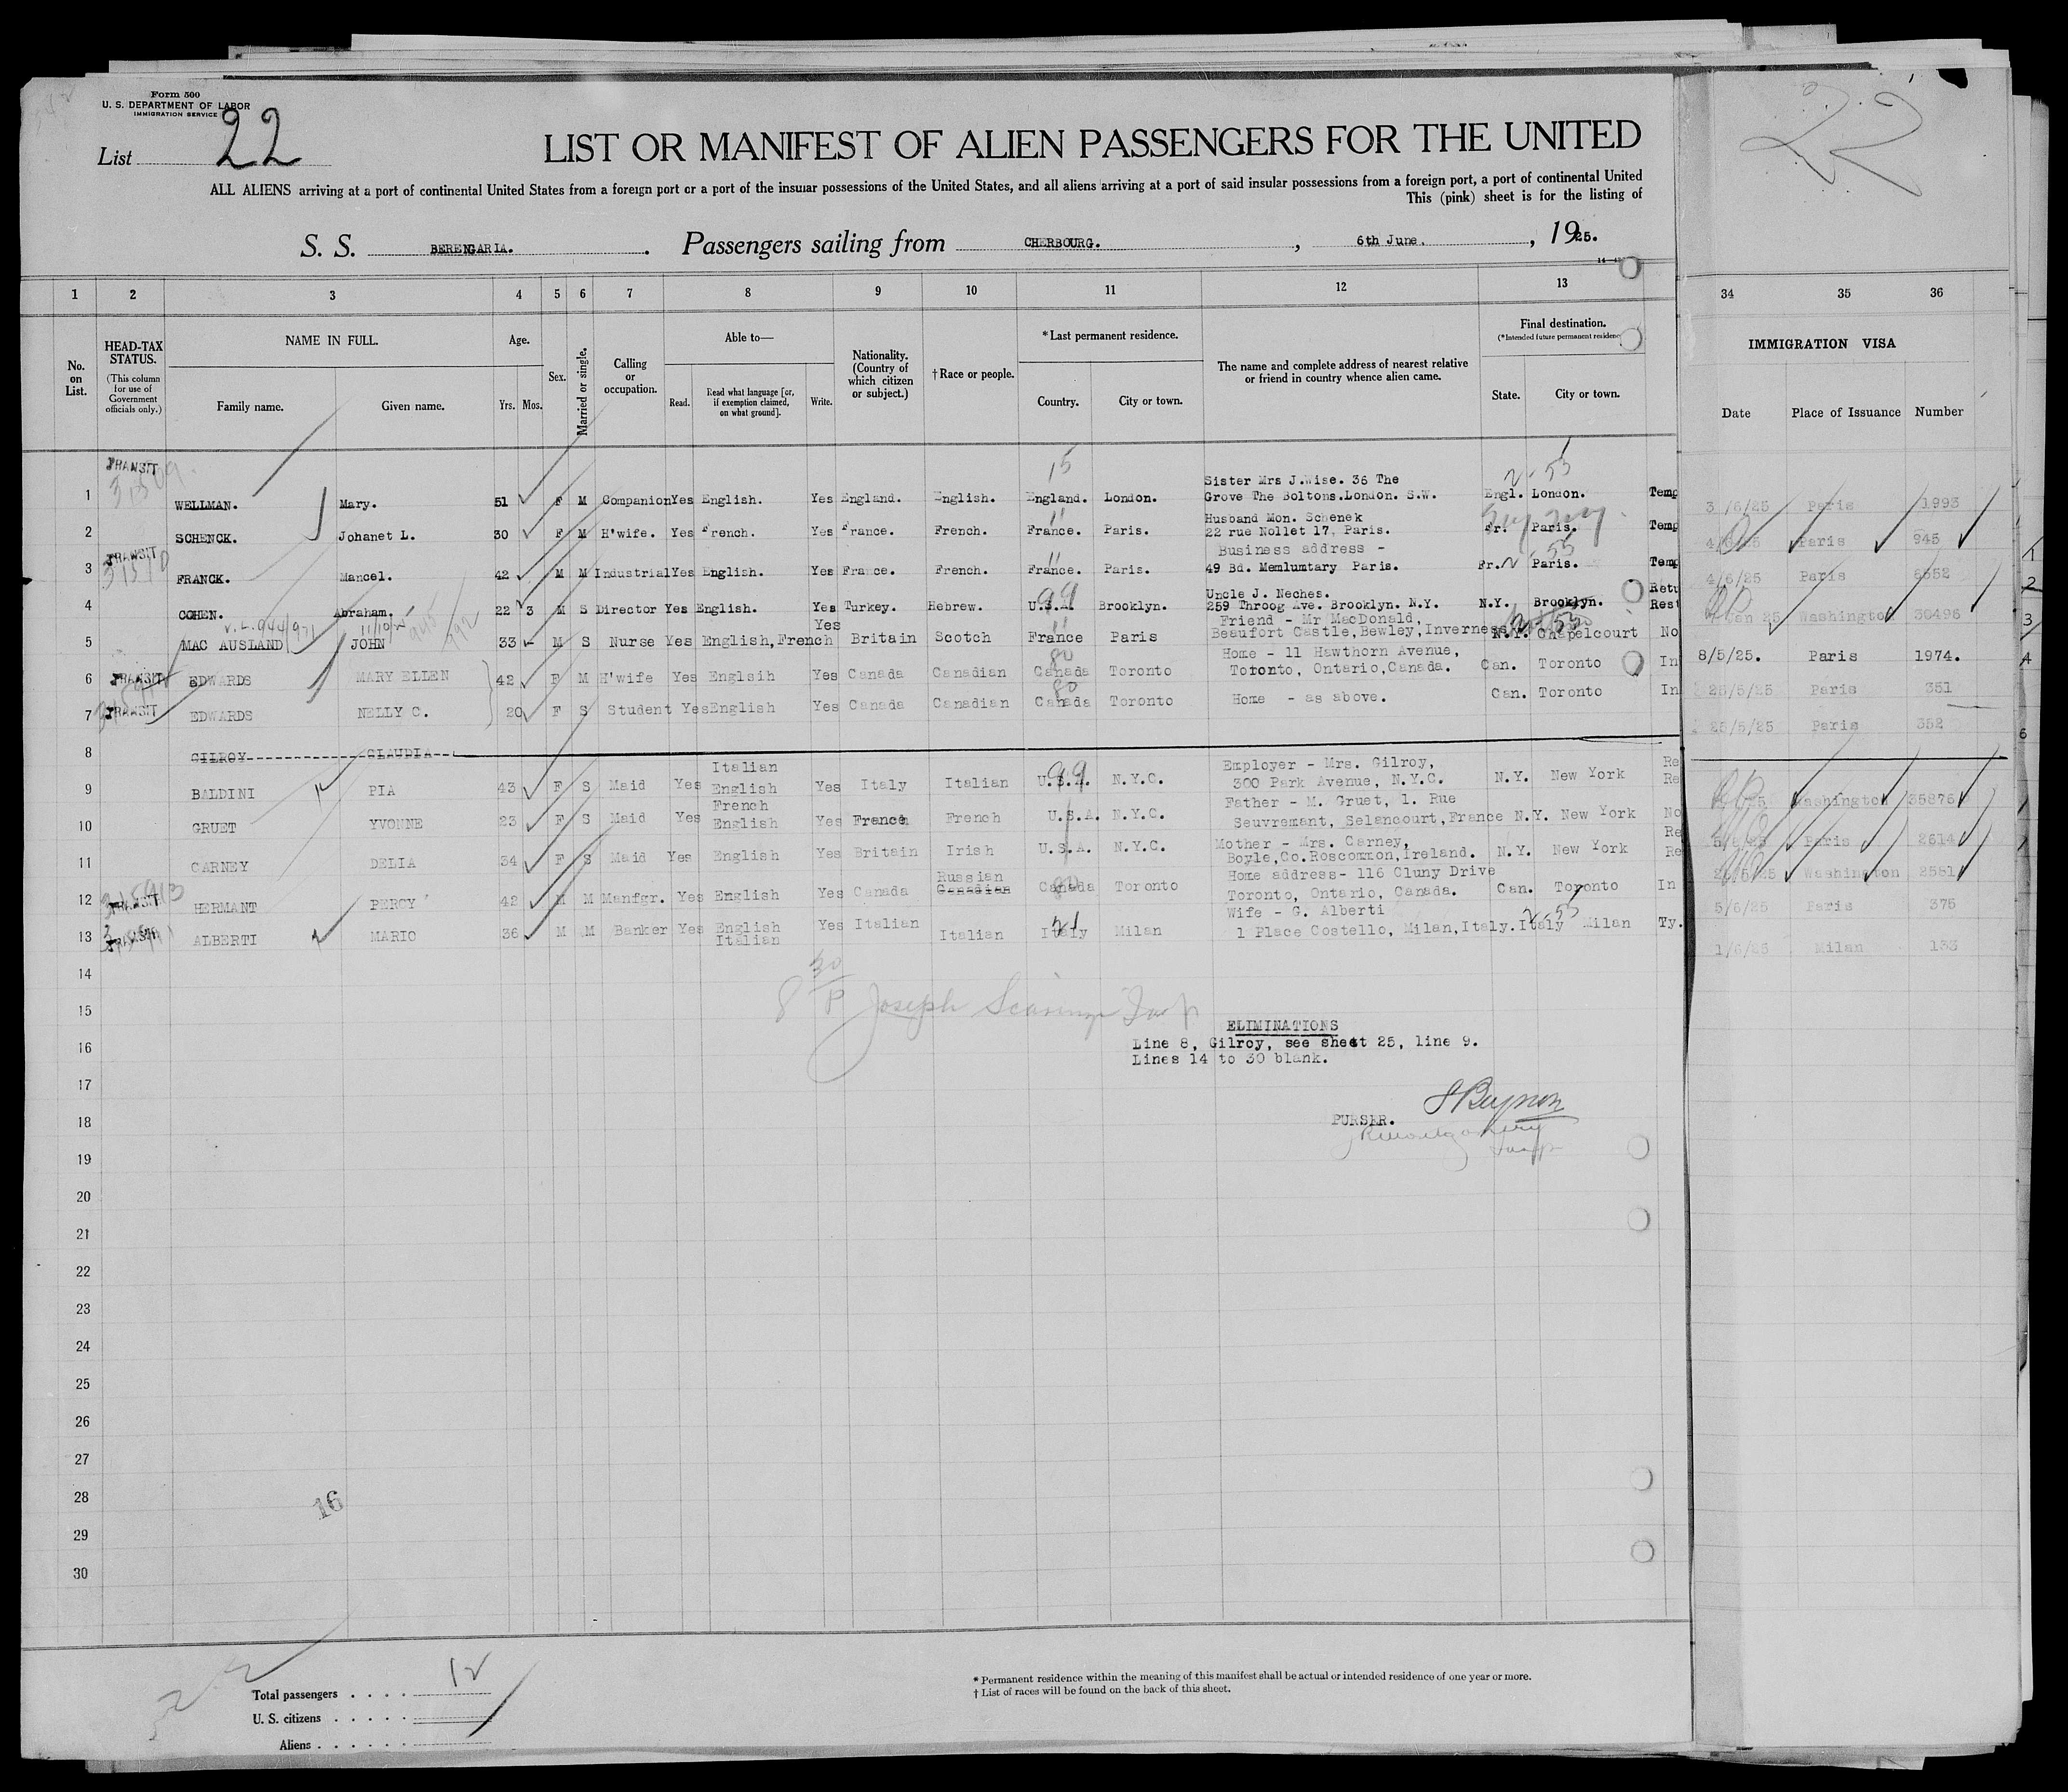 Form 500
U. S. DEPARTMENT OF LABOR
IMMIGRATION SERVICE
List 22
LIST OR MANIFEST OF ALIEN PASSENGERS FOR THE UNITED
22
ALL ALIENS arriving at a port of continental United States from a foreign port or a port of the insular possessions of the United States, and all aliens arriving at a port of said insular possessions from a foreign port, a port of continental United
This (pink) sheet is for the listing of
S. S. BERENGARIA. Passengers sailing from CHERBOURG. , 6th June. , 1925.
1 2 3 4 5 6 7 8 9 10 11 12 13 34 35 36
No. on List.
HEAD-TAX STATUS.
(This column for use of Government officials only.)
NAME IN FULL.
Family name. Given name.
Age.
Yrs. Mos.
Sex.
Married or single.
Calling or occupation.
Able to—
Read. Read what language [or, if exemption claimed, on what ground]. Write.
Nationality. (Country of which citizen or subject.)
†Race or people.
*Last permanent residence.
Country. City or town.
The name and complete address of nearest relative or friend in country whence alien came.
Final destination.
(*Intended future permanent residence
State. City or town.
IMMIGRATION VISA
Date Place of Issuance Number
TRANSIT 15 2-55
Sister Mrs J.Wise. 36 The
1 WELLMAN. Mary. 51 F M Companion Yes English. Yes England. English. England. London. Grove The Boltons.London. S.W. Engl. London. Temp 3/6/25 Paris 1993
Husband Mon. Schenek
2 SCHENCK. Johanet L. 30 F M H'wife. Yes French. Yes France. French. 11 France. Paris. 22 rue Nollet 17, Paris. Fr. Paris. Temp Paris 945
TRANSIT Business address -
3 FRANCK. Mancel. 42 M M Industrial Yes English. Yes France. French. 11 France. Paris. 49 Bd. Memlumtary Paris. Fr. Paris. Temp 4/6/25 Paris 6552
Uncle J. Neches. Retu
4 COHEN. Abraham. 22 3 M S Director Yes English. Yes Turkey. Hebrew. 99 U.S.A. Brooklyn. 259 Throog Ave. Brooklyn. N.Y. N.Y. Brooklyn. Rest Jan 25 Washington 30496
Friend - Mr MacDonald,
5 MAC AUSLAND JOHN 33 M S Nurse Yes English,French Yes Britain Scotch 11 France Paris Beaufort Castle,Bewley,Inverness N.Y. Chapelcourt No 8/5/25. Paris 1974.
Home - 11 Hawthorn Avenue,
6 TRANSIT EDWARDS MARY ELLEN 42 F M H'wife Yes Englsih Yes Canada Canadian 80 Canada Toronto Toronto, Ontario,Canada. Can. Toronto In 25/5/25 Paris 351
7 TRANSIT EDWARDS NELLY C. 20 F S Student Yes English Yes Canada Canadian 80 Canada Toronto Home - as above. Can. Toronto In 25/5/25 Paris 352
8 GILROY CLAUDIA
Italian Employer - Mrs. Gilroy, Re
9 BALDINI PIA 43 F S Maid Yes English Yes Italy Italian 99 U.S.A. N.Y.C. 300 Park Avenue, N.Y.C. N.Y. New York Re Washington 35876
French Father - M. Gruet, 1. Rue
10 GRUET YVONNE 23 F S Maid Yes English Yes French French U.S.A. N.Y.C. Seuvremant, Selancourt,France N.Y. New York No Paris 2614
Mother - Mrs. Carney, Re
11 CARNEY DELIA 34 F S Maid Yes English Yes Britain Irish U.S.A. N.Y.C. Boyle,Co.Roscommon,Ireland. N.Y. New York Re Washington 2581
Russian Home address- 116 Cluny Drive
12 TRANSIT HERMANT PERCY 42 M M Manfgr. Yes English Yes Canada Canadian Canada Toronto Toronto, Ontario, Canada. Can. Toronto In 5/6/25 Paris 375
Wife - G. Alberti 2-55
13 TRANSIT ALBERTI MARIO 36 M M Banker Yes English Italian Yes Italian Italian 21 Italy Milan 1 Place Costello, Milan,Italy. Italy Milan Ty. 1/6/25 Milan 133
14
15 Joseph
ELIMINATIONS
16 Line 8, Gilroy, see sheet 25, line 9.
Lines 14 to 30 blank.
17
18 PURSER.
19
20
21
22
23
24
25
26
27
28 16
29
30
22
Total passengers . . . . 12
U. S. citizens . . . . .
Aliens . . . . . .
* Permanent residence within the meaning of this manifest shall be actual or intended residence of one year or more.
† List of races will be found on the back of this sheet.